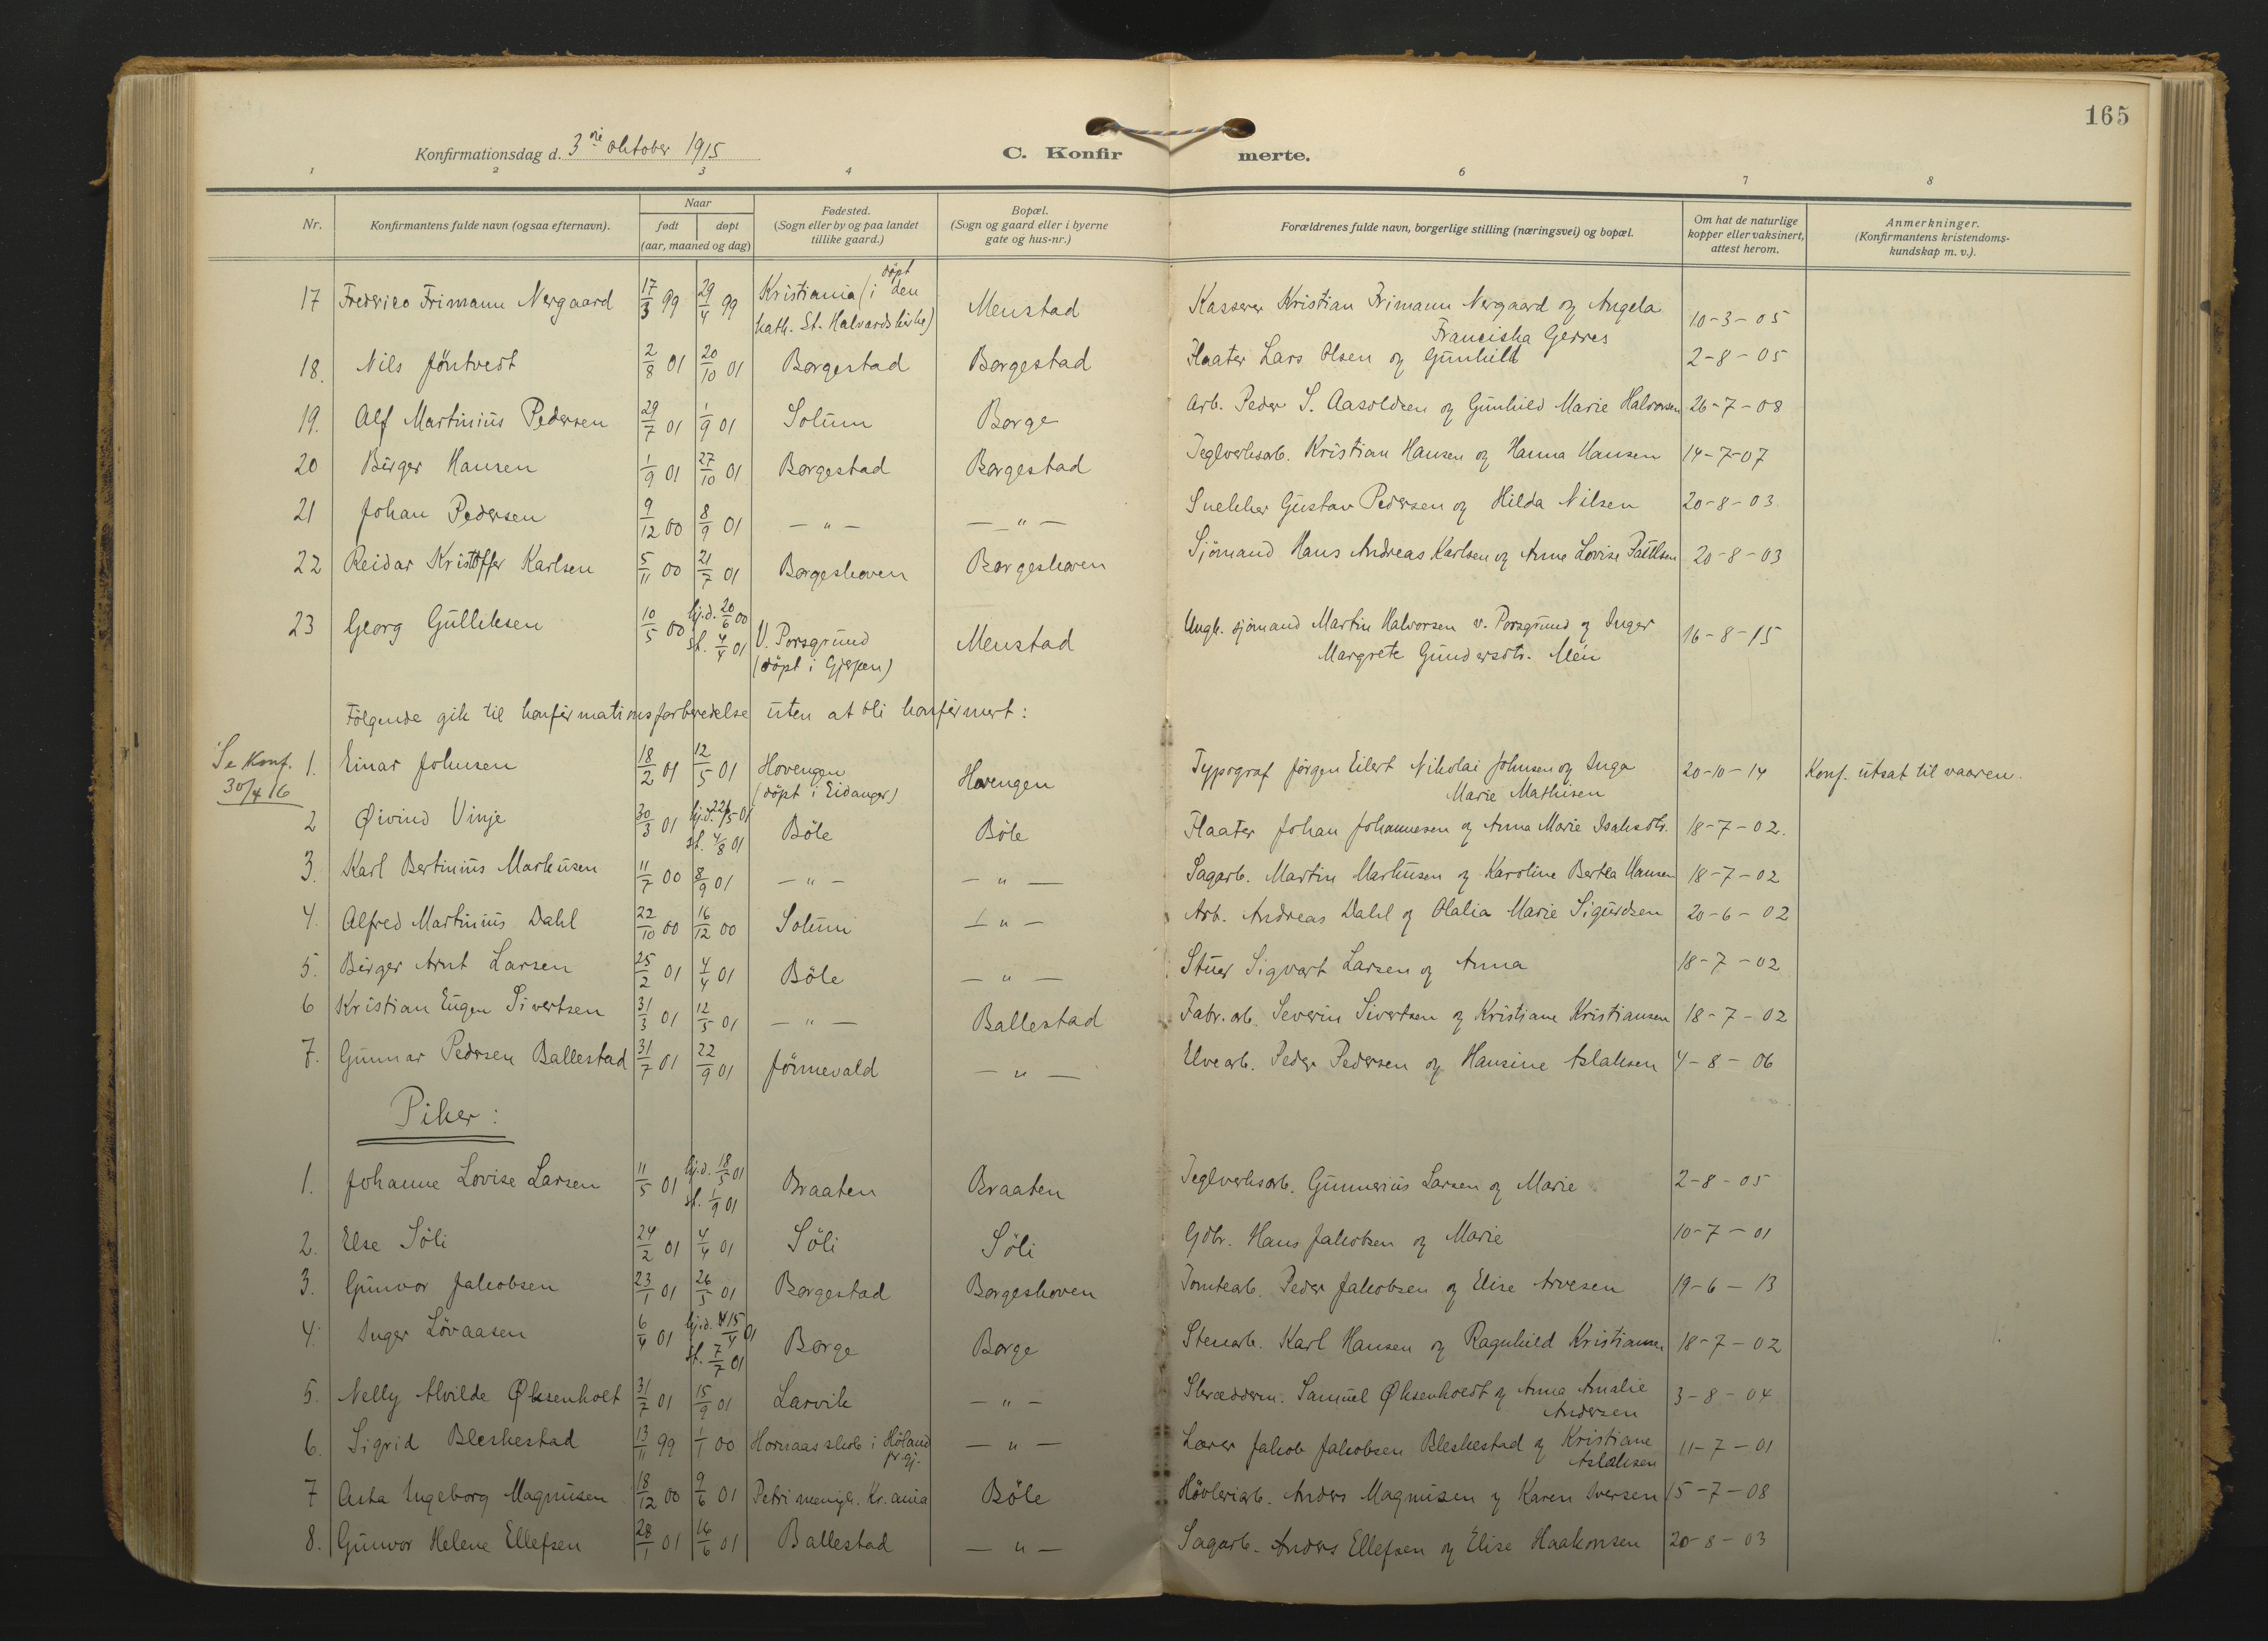 165
Konfirmationsdag d. 3die oktober 1915
C. Konfirmerte.
1 2 3 4 6 7 8
Nr.
Konfirmantens fulde navn (ogsaa efternavn).
Naar
født døpt
(aar, maaned og dag)
Fødested.
(Sogn eller by og paa landet
tillike gaard.)
Bopæl.
(Sogn og gaard eller i byerne
gate og hus-nr.)
Forældrenes fulde navn, borgerlige stilling (næringsvei) og bopæl.
Om hat de naturlige
kopper eller vaksinert,
attest herom.
Anmerkninger.
(Konfirmantens kristendoms-
kundskap m. v.).
17 Frederico Frimann Nergaard 17/3 99 29/4 99 Kristiania (døpt i den Menstad Kasserer Kristian Frimann Nergaard og Angela 10-3-05
kath. St. Halvards kirke) Franciska Gerres
18. Nils Jöntvedt 2/8 01 20/10 01 Borgestad Borgestad Flaater Lars Olsen og Gunhild 2-8-05
19. Alf Martinius Pedersen 29/7 01 1/9 01 Solum Borge Arb. Peder S. Aasoldsen og Gunhild Marie Halvorsen 26-7-08
20 Birger Hansen 1/9 01 27/10 01 Borgestad Borgestad Teglverksarb. Kristian Hansen og Hanna Hansen 14-7-07
21 Johan Pedersen 9/12 00 8/9 01 - " - - " - Snekker Gustav Pedersen og Hilda Nilsen 20-8-03
22 Reidar Kristoffer Karlsen 5/11 00 21/7 01 Borgeskoven Borgeskoven Sjömand Hans Andreas Karlsen og Anne Lovise Paulsen 20-8-03
23 Georg Gulliksen 10/5 00 hj.d. 20/6 00 V. Porsgrund Menstad Ungk. sjömand Martin Halvorsen v. Porsgrund og Inger 16-8-15
st. 4/4 01 (döpt i Gjerpen) Margrete Gundersdtr. Mén
Fölgende gik til konfirmationsforberedelse uten at bli konfirmert:
Se Konf. 1. Einar Johnsen 18/2 01 12/5 01 Hovengen Hovengen Typograf Jörgen Eilert Nikolai Johnsen og Inga 20-10-14 Konf. utsat til vaaren.
30/4 16 (döpt i Eidanger) Marie Mathisen
2 Øivind Vinje 30/3 01 hj.d. 22/5 01 Böle Böle Flaater Johan Johannesen og Anna Marie Isaksdtr. 18-7-02.
st. 4/8 01
3. Karl Bertinius Markusen 11/7 00 8/9 01 - " - - " - Sagarb. Martin Markusen og Karoline Bertea Hansen 18-7-02
4. Alfred Martinius Dahl 22/10 00 16/12 00 Solum - " - Arb. Andreas Dahl og Olalia Marie Sigurdsen 20-6-02
5. Birger Arnt Larsen 25/2 01 4/4 01 Böle - " - Stuer Sigvart Larsen og Anna 18-7-02
6 Kristian Eugen Sivertsen 31/3 01 12/5 01 - " - Ballestad Fabr. arb. Severin Sivertsen og Kristiane Kristiansen 18-7-02
7. Gunnar Pedersen Ballestad 31/7 01 22/9 01 Jönnevald - " - Elvearb. Peder Pedersen og Hansine Aslaksen 4-8-06
Piker:
1. Johanne Lovise Larsen 11/5 01 hj.d. 18/5 01 Braaten Braaten Teglverksarb. Gunnerius Larsen og Marie 2-8-05
st. 1/9 01
2. Else Söli 24/2 01 4/4 01 Söli Söli Gdbr. Hans Jakobsen og Marie 10-7-01
3. Gunvor Jakobsen 23/1 01 26/5 01 Borgestad Borgeskoven Tomtearb. Peder Jakobsen og Elise Arvesen 19-6-13
4. Inger Lövaasen 6/4 01 hj.d. 15/4 01 Borge Borge Stenarb. Karl Hansen og Ragnhild Kristiansen 18-7-02
st. 7/7 01
5. Nelly Alvilde Øksenholt 31/7 01 15/9 01 Larvik - " - Skrædderm. Samuel Øksenholdt og Anna Amalie 3-8-04
Andersen
6. Sigrid Bleskestad 13/11 99 1/1 00 Hornaas skole i Höland - " - Lærer Jakob Jakobsen Bleskestad og Kristiane 11-7-01
pr.gj. Aslaksen
7 Asta Ingeborg Magnusen 18/12 00 9/6 01 Petri menigh. Kr.ania Böle Hövleriarb. Anders Magnusen og Karen Iversen 15-7-08
8. Gunvor Helene Ellefsen 28/1 01 16/6 01 Ballestad - " - Sagarb. Anders Ellefsen og Elise Haakonsen 20-8-03